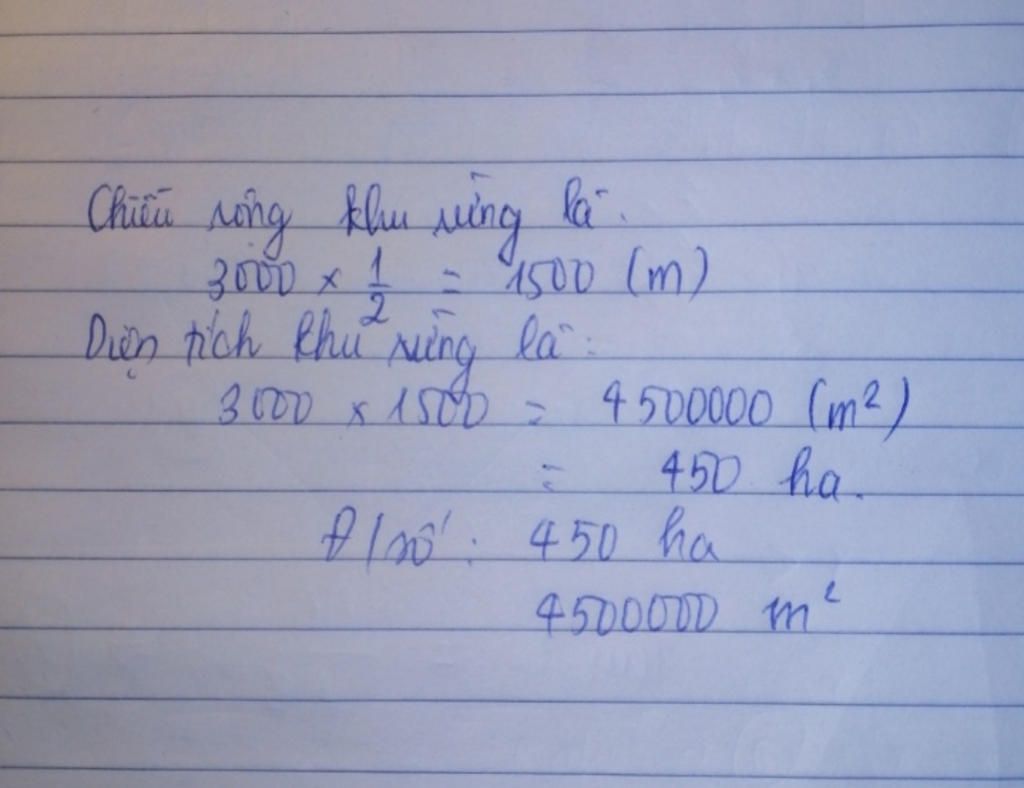 Chiều rộng khu rừng là.
3000 × 1/2 = 1500 (m)
Diện tích khu rừng là:
3000 × 1500 = 4500000 (m²)
= 450 ha.
Đ/số: 450 ha
4500000 m²